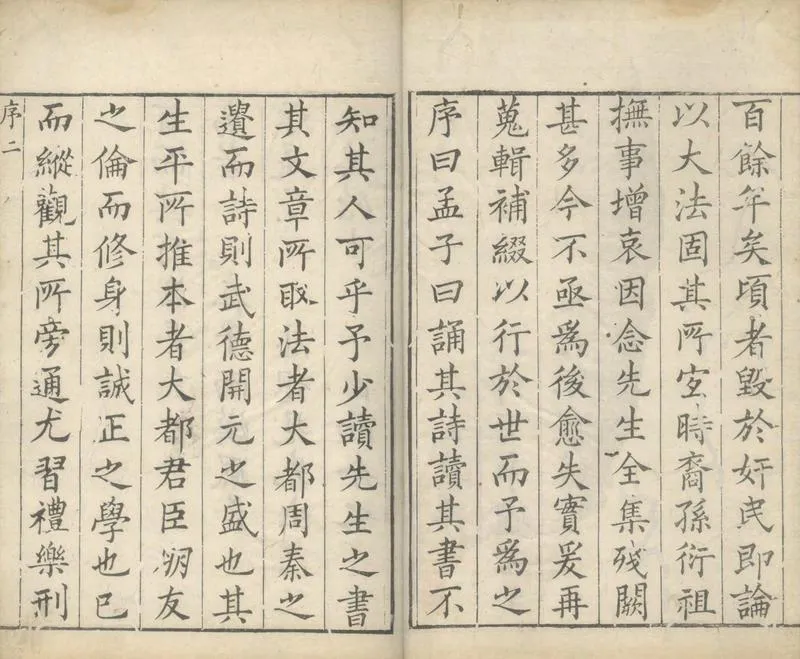 百餘年矣頃者毀於奸民即論
以大法固其所宜時裔孫衍祖
撫事增哀因念先生全集殘闕
甚多今不亟爲後愈失實爰再
蒐輯補綴以行於世而予爲之
序曰孟子曰誦其詩讀其書不
知其人可乎予少讀先生之書
其文章所取法者大都周秦之
遺而詩則武德開元之盛也其
生平所推本者大都君臣朋友
之倫而修身則誠正之學也已
而縱觀其所旁通尤習禮樂刑
序二